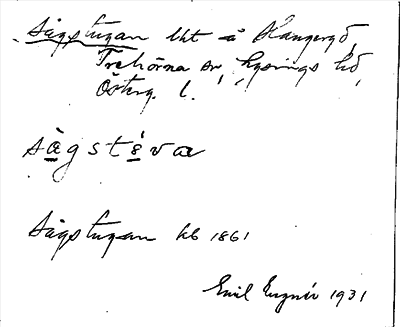 Sågstugan lht å Stångergd,
Trehörna sn, Lysings hd,
Österg. l.
sågstəva
Sågstugan kb 1861
Emil Eugnér 1931